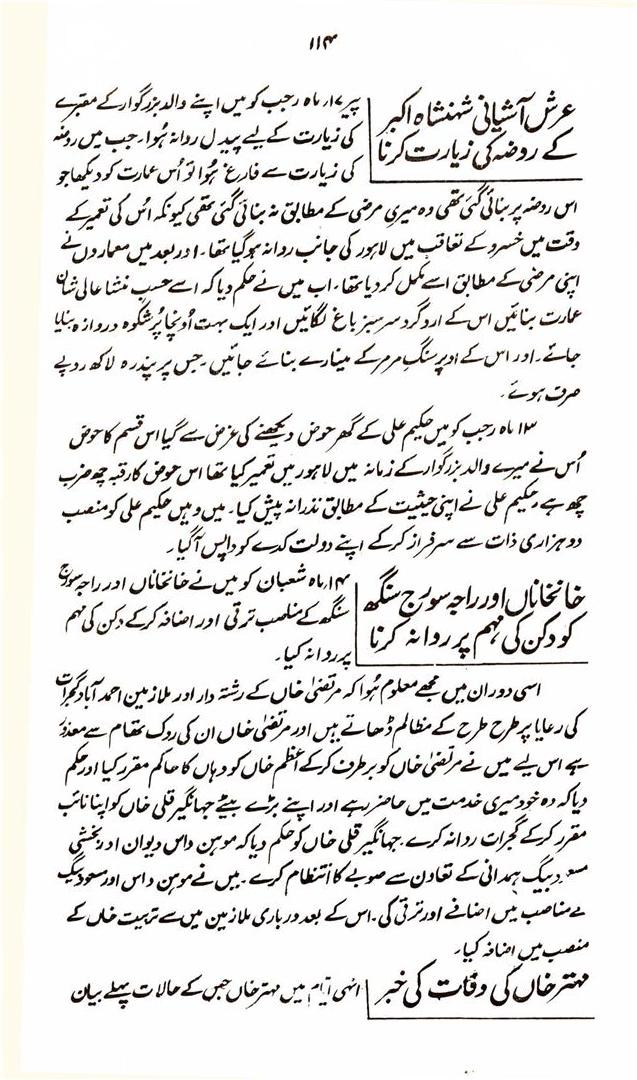 ۱۱۴
عرش آشیانی شہنشاہ اکبر
کے روضہ کی زیارت کرنا
پیر ۱۷ ماہ رجب کو میں اپنے والد بزرگوار کے مقبرے
کی زیارت کے لیے پیدل روانہ ہُوا۔ جب میں روضہ
کی زیارت سے فارغ ہُوا تو اُس عمارت کو دیکھا جو
اس روضہ پر بنائی گئی تھی وہ میری مرضی کے مطابق نہ بنائی گئی تھی کیونکہ اُس کی تعمیر کے
وقت میں خسرو کے تعاقب میں لاہور کی جانب روانہ ہوگیا تھا۔ اور بعد میں معماروں نے
اپنی مرضی کے مطابق اسے مکمل کر دیا تھا۔ اب میں نے حکم دیا کہ اسے حسب منشا عالی شان
عمارت بنائیں اس کے اردگرد سرسبز باغ لگائیں اور ایک بہت اُونچا پُرشکوہ دروازہ بنایا
جائے۔ اور اس کے اوپر سنگ مرمر کے مینارے بنائے جائیں۔ جس پر پندرہ لاکھ روپے
صرف ہوئے۔
۱۳ ماہ رجب کو میں حکیم علی کے گھر حوض دیکھنے کی غرض سے گیا اس قسم کا حوض
اُس نے میرے والد بزرگوار کے زمانہ میں لاہور میں تعمیر کیا تھا اس حوض کا رقبہ چھ ضرب
چھ ہے۔ حکیم علی نے اپنی حیثیت کے مطابق نذرانہ پیش کیا۔ میں وہیں حکیم علی کو منصب
دو ہزاری ذات سے سرفراز کرکے اپنے دولت کدے کو واپس آگیا۔
خانخاناں اور راجہ سورج سنگھ
کو دکن کی مہم پر روانہ کرنا
۱۴ ماہ شعبان کو میں نے خانخاناں اور راجہ سورج
سنگھ کے منصب ترقی اور اضافہ کرکے دکن کی مہم
پر روانہ کیا۔
اسی دوران میں مجھے معلوم ہُوا کہ مرتضیٰ خاں کے رشتہ دار اور ملازمین احمد آباد گجرات
کی رعایا پر طرح طرح کے مظالم ڈھاتے ہیں اور مرتضیٰ خاں ان کی روک تھام سے معذور
ہے اس لیے میں نے مرتضیٰ خاں کو برطرف کرکے اُعظم خاں کو وہاں کا حاکم مقرر کیا اور حکم
دیا کہ وہ خود میری خدمت میں حاضر رہے اور اپنے بڑے بیٹے جہانگیر قلی خاں کو اپنا نائب
مقرر کرکے گجرات روانہ کرے۔ جہانگیر قلی خاں کو حکم دیا کہ موہن داس دیوان اور بخشی
مسعود بیگ ہمدانی کے تعاون سے صوبے کا انتظام کرے۔ میں نے موہن داس اور مسعود بیگ
کے مناصب میں اضافے اور ترقی کی۔ اس کے بعد درباری ملازمین میں سے تربیت خاں کے
منصب میں اضافہ کیا۔
مہتر خاں کی وفات کی خبر
انہی ایام میں مہتر خاں جس کے حالات پہلے بیان